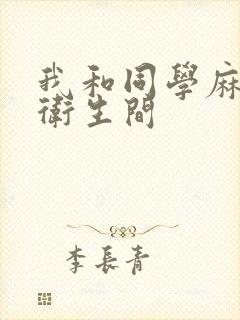 我和同學麻
衛生間
李長青